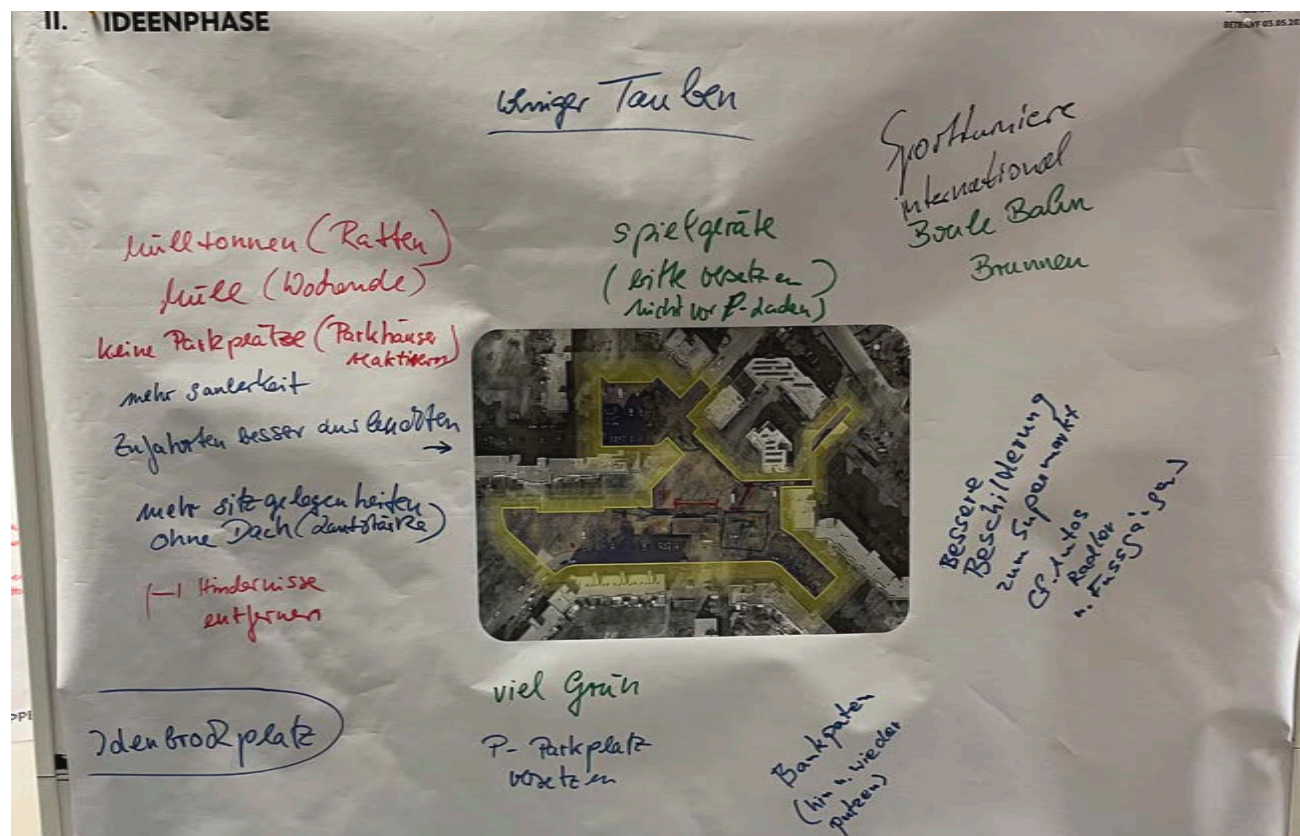 II. IDEENPHASE
weniger Tauben
Sportturniere
international
Boule Bahn
Brunnen
Mülltonnen (Ratten)
Müll (Wochende)
keine Parkplätze (Parkhäuser
reaktivern)
mehr sauberkeit
Zufahrten besser ausleuchten
→
mehr sitzgelegenheiten
ohne Dach (Lautstärke)
Hindernisse
entfernen
spielgeräte
(bitte versetzen)
nicht vor P-Laden)
Bessere
Beschilderung
zum Supermarkt
Autos
Radler
u. Fussgä
Idenbrockplatz
viel Grün
P-Parkplatz
versetzen
Bankpaten
(hin u. wieder
putzen)